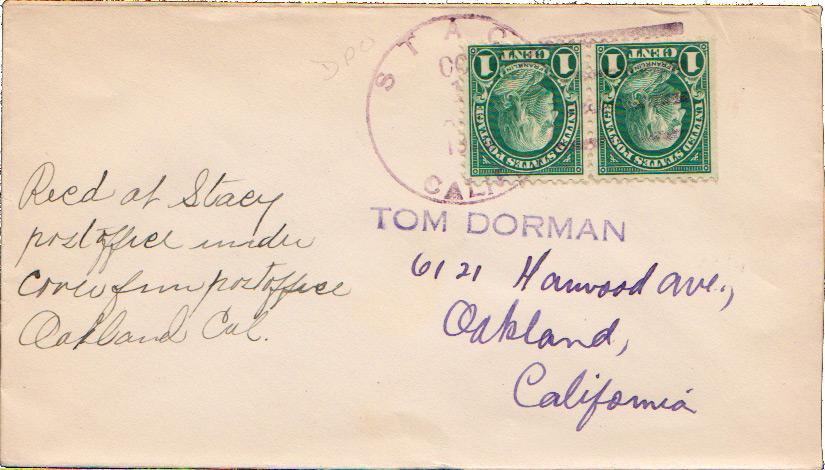 DPO
STAC
OC
CALI
1 CENT 1
FRANKLIN
UNITED STATES POSTAGE
1 CENT 1
FRANKLIN
UNITED STATES POSTAGE
TOM DORMAN
6121 Harwood ave.,
Oakland,
California
Recd at Stacy
postoffice under
cover from postoffice
Oakland Cal.